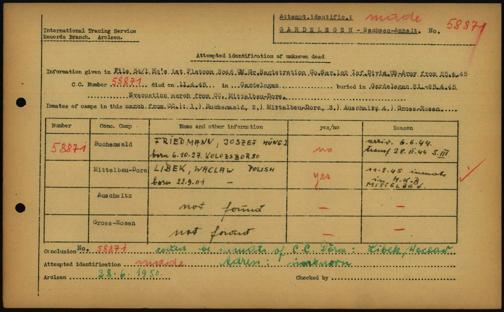 International Tracing Service
Records Branch. Arolsen.
Attempt.identific.: made
GARDELEGEN - Sachsen-Anhalt. No. 58871
Attempted identification of unknown dead
Information given in File
C.C. Number 58871 died in 11.4.45 in Gardelegen buried in Gardelegen
Evacuation march from CC. Mittelbau-Dora.
Inmates of camps in this march from CC.: 1.) Buchenwald, 2.) Mittelbau-Dora, 3.) Auschwitz 4.) Gross-Rosen.
Number Conc. Camp Name and other information yes/no Reason
58871 Buchenwald FRIEDMANN, JOSEF
born 6.10.27 KOLOZSBORSO no arriv. 6.6.44
transf 28.11.44 S.III
Mittelbau-Dora LIBEK, WACLAW POLISH
born 22.9.01 - yes
Auschwitz
not found
Gross-Rosen
not found
Conclusion No. 58871 of C.C. Dora: Libek, Waclaw
Attempted identification made unknown
Arolsen 28.6.1950 Checked by